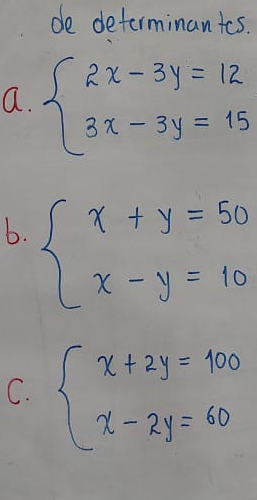 de determinantes.
2x - 3y = 12
a.
3x - 3y = 15
x + y = 50
b.
x - y = 10
x + 2y = 100
c.
x - 2y = 60